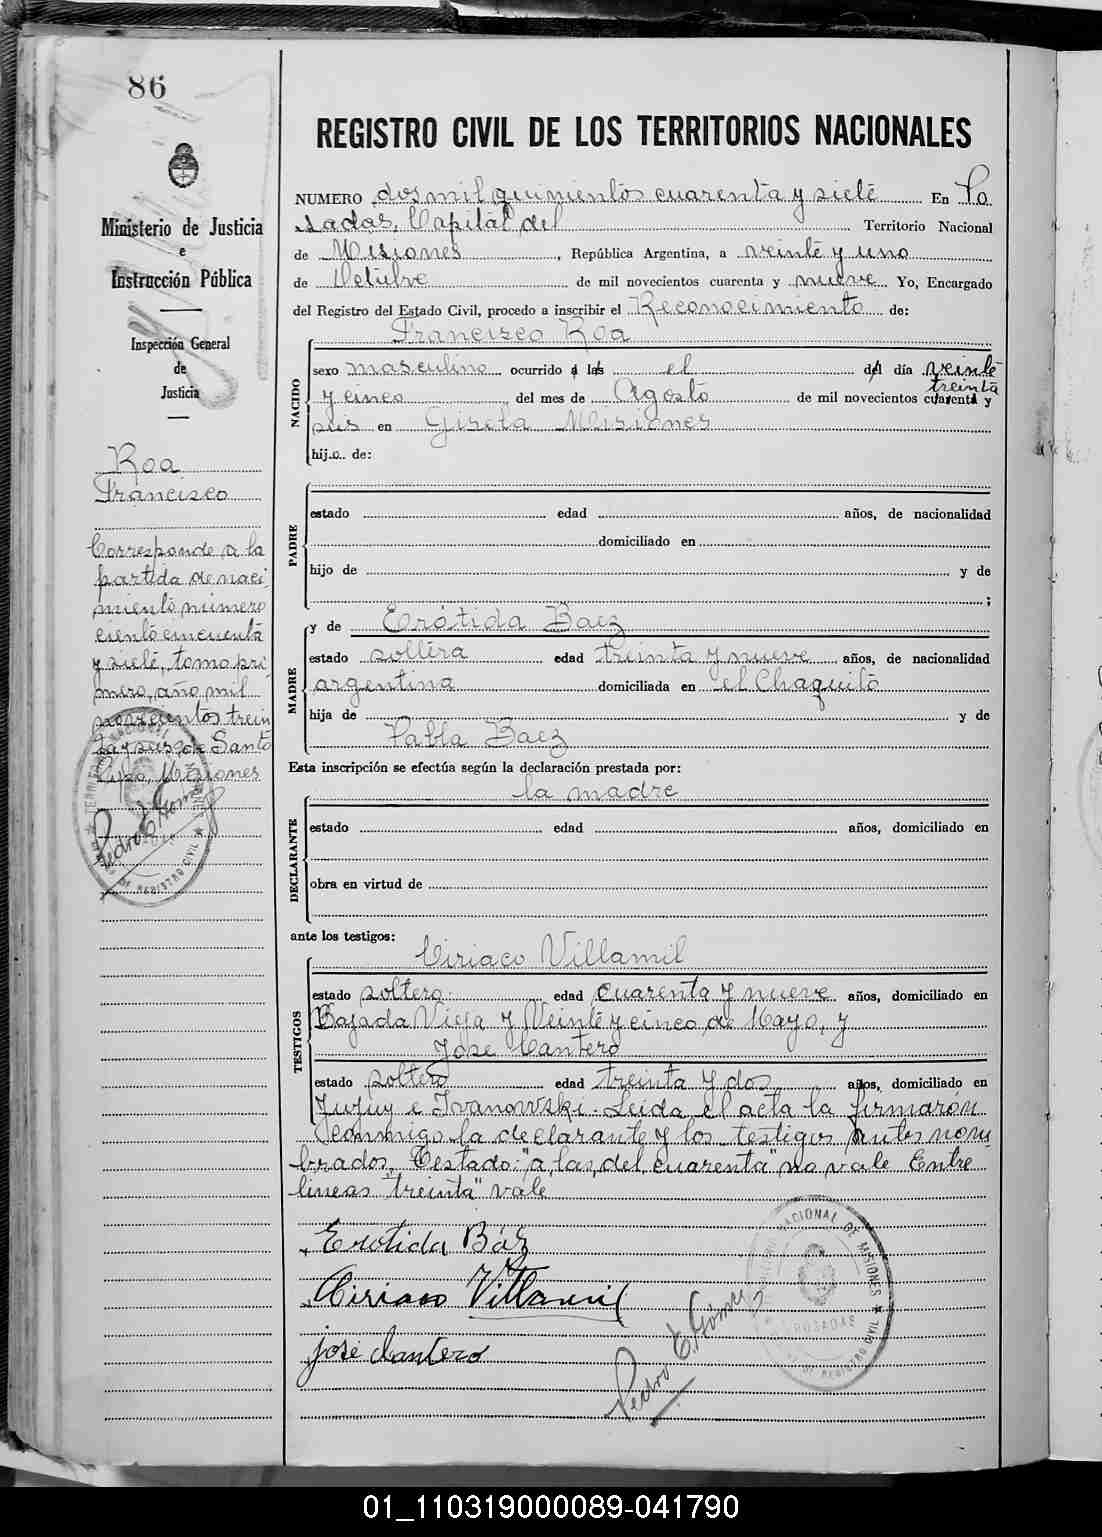 86
Ministerio de Justicia
e
Instrucción Pública
Inspección General
de
Justicia
Roa
Francisco
Corresponde a la
partida de naci-
miento número
ciento cincuenta
y siete, tomo pri
mero, año mil
novecientos trein
ta y seis, de Santo
Pipo, Misiones
Pedro E. Gómez
REGISTRO CIVIL DE LOS TERRITORIOS NACIONALES
NUMERO dos mil quinientos cuarenta y siete En Po
sadas, Capital del Territorio Nacional
de Misiones, República Argentina, a veinte y uno
de Octubre de mil novecientos cuarenta y nueve Yo, Encargado
del Registro del Estado Civil, procedo a inscribir el Reconocimiento de:
Francisco Roa
NACIDO
sexo masculino ocurrido a las el del día veinte
treinta
y cinco del mes de Agosto de mil novecientos cuarenta y
seis en Gisela Misiones
hijo de:
PADRE
estado edad años, de nacionalidad
domiciliado en
hijo de y de
;
y de Erótida Baez
MADRE
estado soltera edad treinta y nueve años, de nacionalidad
argentina domiciliada en el Chaquito
hija de y de
Pabla Baez
Esta inscripción se efectúa según la declaración prestada por:
la madre
DECLARANTE
estado edad años, domiciliado en
obra en virtud de
ante los testigos:
Ciriaco Villamil
TESTIGOS
estado soltero edad cuarenta y nueve años, domiciliado en
Bajada Vieja y Veinte y cinco de Mayo, y
Jose Cantero
estado soltero edad treinta y dos años, domiciliado en
Jujuy e Ivanowski. Leida el acta la firmarón
conmigo la declarante y los testigos antes nom
brados. Testado: "a las, del, cuarenta" no vale Entre
lineas "treinta" vale
Erotida Báez
Ciriaco Villamil
josé Cantero
Pedro E. Gómez
TERRITORIO NACIONAL DE MISIONES
POSADAS
DE REGISTRO CIVIL
01_110319000089-041790